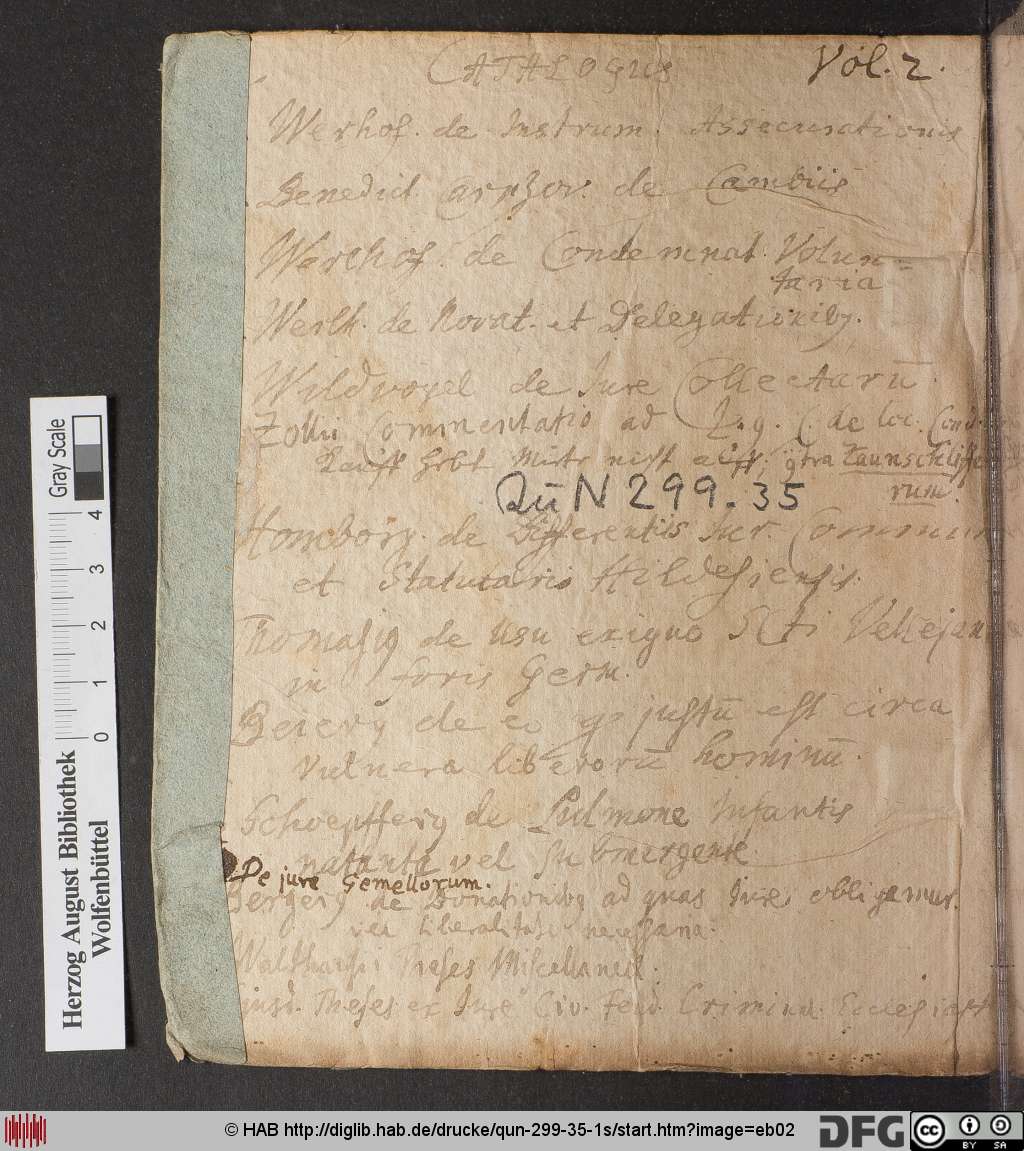 CATHALOGUS Vol. 2.
Werhof. de Instrum. Assecurationis
Benedict Carpzov. de Cambiis
Werlhof. de Condemnat. Volun=
taria
Werlh. de Novat. et Delegationibȝ.
Wildvogel de Iure Collectarū.
Zollii Commentatio ad L. 9. C. de loc. Cond.
Kauff bricht Miete nicht auff
rum.
QuN 299.35
Homborg. de Differentiis Iur. Commun
et Statutario Hildesiensis.
Thomasiȝ de usu exiguo SCti Vellejan
in foris Germ.
Beierȝ de eo qȝ justū est circa
vulnera liberorū hominū.
Schoepfferȝ de Pulmone Infantis
natante vel submergente
De jure Gemellorum.
Bergerȝ de Donationibȝ ad quas Iure obligamur.
seu liberalitate necessaria.
Theses Miscellaneæ.
Ejusd. Theses ex Iure Civ. Feud. Crimin. Ecclesiast
Gray Scale
0 1 2 3 4
Herzog August Bibliothek
Wolfenbüttel
© HAB http://diglib.hab.de/drucke/qun-299-35-1s/start.htm?image=eb02
DFG
cc BY SA